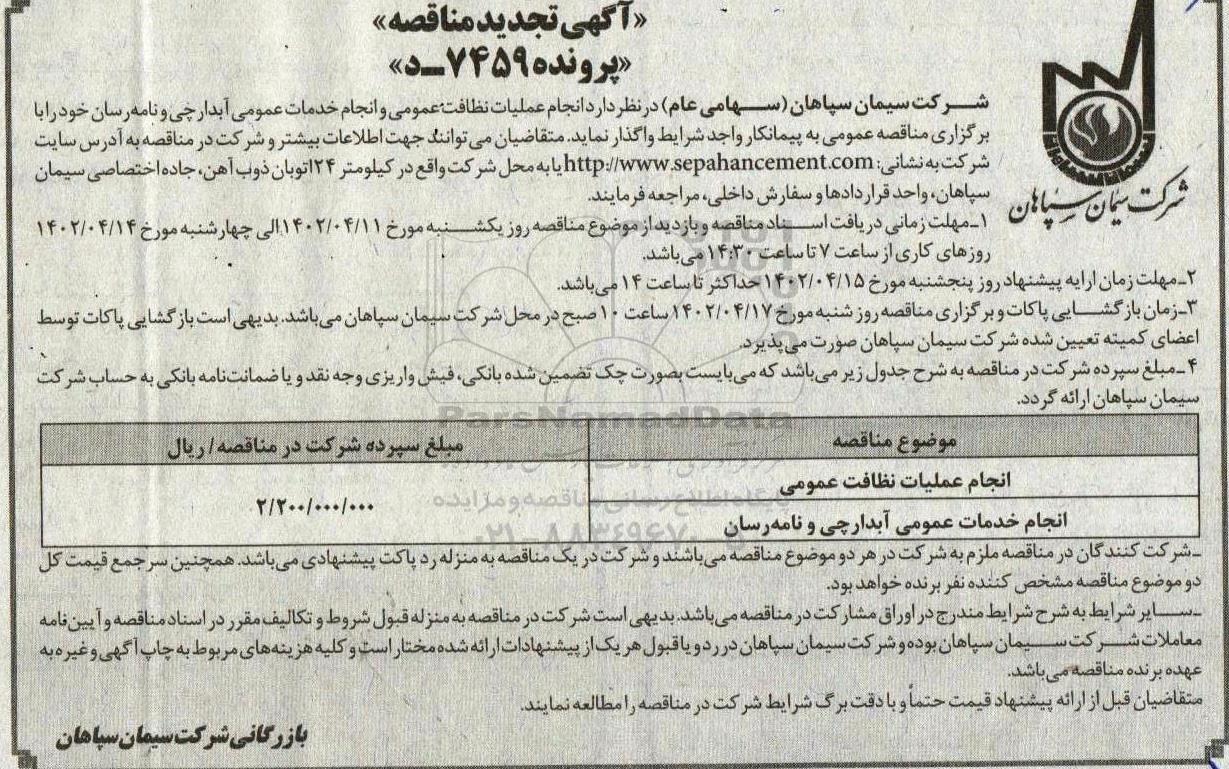 «آگهی تجدید مناقصه»
«پرونده ۷۴۵۹ـد»
شرکت سیمان سپاهان
شرکت سیمان سپاهان (سهامی عام) در نظر دارد انجام عملیات نظافت عمومی و انجام خدمات عمومی آبدارچی و نامه رسان خود را با
برگزاری مناقصه عمومی به پیمانکار واجد شرایط واگذار نماید. متقاضیان می‌توانند جهت اطلاعات بیشتر و شرکت در مناقصه به آدرس سایت
شرکت به نشانی: http://www.sepahancement.com یا به محل شرکت واقع در کیلومتر ۲۴ اتوبان ذوب آهن، جاده اختصاصی سیمان
سپاهان، واحد قراردادها و سفارش داخلی، مراجعه فرمایند.
۱ـ مهلت زمانی دریافت اسناد مناقصه و بازدید از موضوع مناقصه روز یکشنبه مورخ ۱۴۰۲/۰۴/۱۱ الی چهارشنبه مورخ ۱۴۰۲/۰۴/۱۴
روزهای کاری از ساعت ۷ تا ساعت ۱۴:۳۰ می‌باشد.
۲ـ مهلت زمان ارایه پیشنهاد روز پنجشنبه مورخ ۱۴۰۲/۰۴/۱۵ حداکثر تا ساعت ۱۴ می‌باشد.
۳ـ زمان بازگشایی پاکات و برگزاری مناقصه روز شنبه مورخ ۱۴۰۲/۰۴/۱۷ ساعت ۱۰ صبح در محل شرکت سیمان سپاهان می‌باشد. بدیهی است بازگشایی پاکات توسط
اعضای کمیته تعیین شده شرکت سیمان سپاهان صورت می‌پذیرد.
۴ـ مبلغ سپرده شرکت در مناقصه به شرح جدول زیر می‌باشد که می‌بایست بصورت چک تضمین شده بانکی، فیش واریزی وجه نقد و یا ضمانت‌نامه بانکی به حساب شرکت
سیمان سپاهان ارائه گردد.
ParsNamadData
موضوع مناقصه	مبلغ سپرده شرکت در مناقصه / ریال
انجام عملیات نظافت عمومی
۲/۲۰۰/۰۰۰/۰۰۰
پایگاه اطلاع رسانی مناقصه و مزایده
انجام خدمات عمومی آبدارچی و نامه‌رسان
۰۲۱-۸۸۳۴۹۶۷۰
ـ شرکت کنندگان در مناقصه ملزم به شرکت در هر دو موضوع مناقصه می‌باشند و شرکت در یک مناقصه به منزله رد پاکت پیشنهادی می‌باشد. همچنین سرجمع قیمت کل
دو موضوع مناقصه مشخص کننده نفر برنده خواهد بود.
ـ سایر شرایط به شرح شرایط مندرج در اوراق مشارکت در مناقصه می‌باشد. بدیهی است شرکت در مناقصه به منزله قبول شروط و تکالیف مقرر در اسناد مناقصه و آیین‌نامه
معاملات شرکت سیمان سپاهان بوده و شرکت سیمان سپاهان در رد و یا قبول هر یک از پیشنهادات ارائه شده مختار است و کلیه هزینه‌های مربوط به چاپ آگهی و غیره به
عهده برنده مناقصه می‌باشد.
متقاضیان قبل از ارائه پیشنهاد قیمت حتماً و با دقت برگ شرایط شرکت در مناقصه را مطالعه نمایند.
بازرگانی شرکت سیمان سپاهان